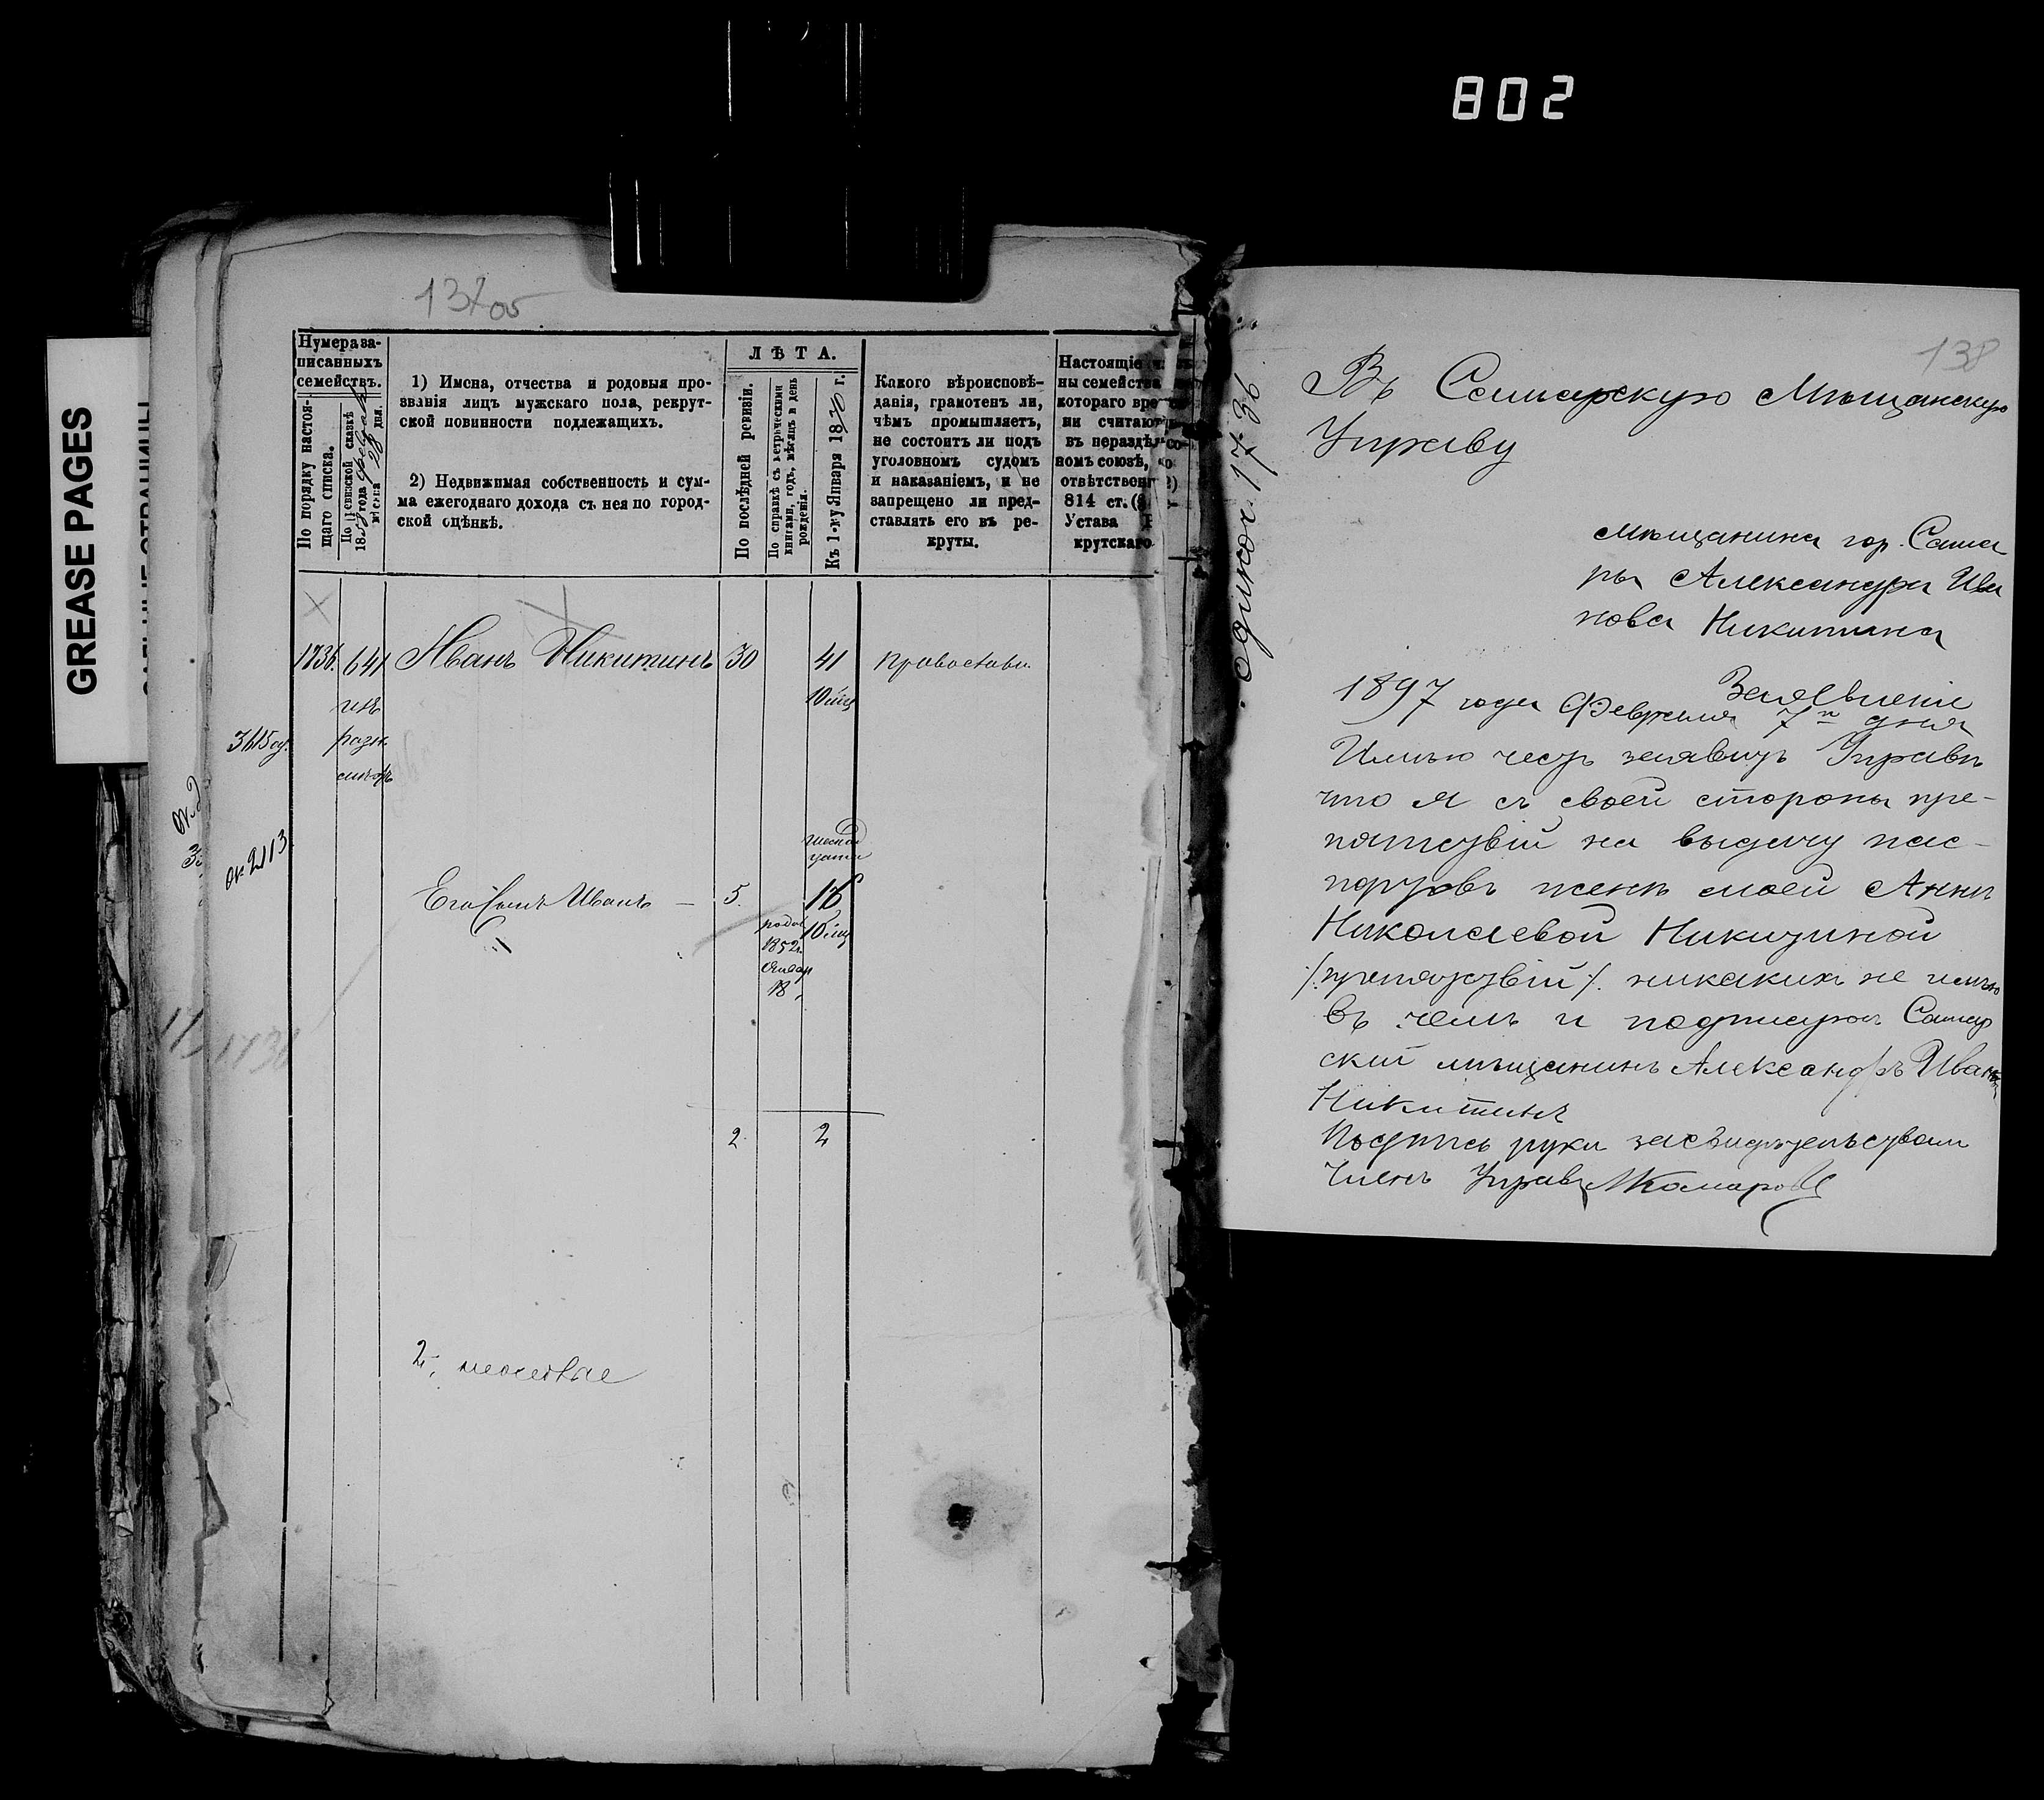 802
GREASE PAGES
137об
Нумера за-
писанныхъ
семействъ.
По порядку настоя-
щаго списка.
По ревизской сказкѣ
1858 года февраля
мѣсяца 28 дня.
1) Имена, отчества и родовыя про-
званія лицъ мужскаго пола, рекрут-
ской повинности подлежащихъ.
2) Недвижимая собственность и сум-
ма ежегоднаго дохода съ нея по город-
ской оцѣнкѣ.
ЛѢТА.
По послѣдней ревизіи.
По справкѣ съ метрическими
книгами, годъ, мѣсяцъ и день
рожденія.
Къ 1-му Января 1870 г.
Какого вѣроисповѣ-
данія, грамотенъ ли,
чѣмъ промышляетъ,
не состоитъ ли подъ
уголовномъ судомъ
и наказаніемъ, и не
запрещено ли пред-
ставлять его въ ре-
круты.
Настоящіе
ны семейства
котораго вре
ни считаю
въ нераздѣл
номъ союзѣ,
отвѣтствен
814 ст.
Устава
крутскаго
1736. 641 Иванъ Никитинъ 30 41 Православн.
изъ
разн.
10 мц
Его Сынъ Иванъ — 5. 18
родов
1852г.
Январ
18
10 мц
2 2
2,
1736
138
одиноч. 1736
Въ Самарскую Мѣщанскую
Управу
Мѣщанина гор. Сама
ры Александра Ива
нова Никитина
Заявленіе
1897 года Февраля 7го дня
Имѣю честь заявить Управѣ
что я съ своей стороны пре-
пятствій на выдачу пас-
портовъ женѣ моей Аннѣ
Николаевой Никитиной
/:препятствій:/ никакихъ не имѣю
въ чемъ и подписуюсь Самар
скій мѣщанинъ Александръ Ивановъ
Никитинъ
Подпись руки засвидѣтельствовалъ
Членъ Управы Комаровъ